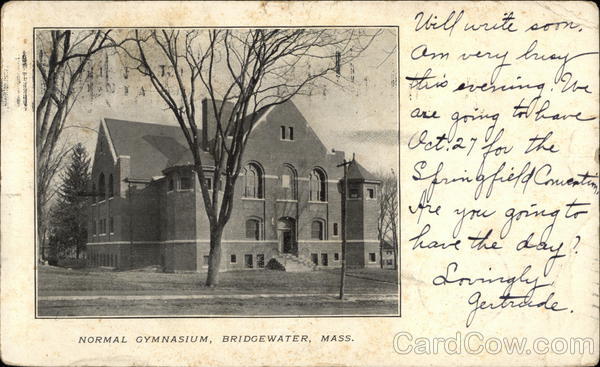 Will write soon.
Am very busy
this evening. We
are going to have
Oct. 27 for the
Springfield Convention,
Are you going to
have the day?
Lovingly,
Gertrude.
NORMAL GYMNASIUM, BRIDGEWATER, MASS.
CardCow.com